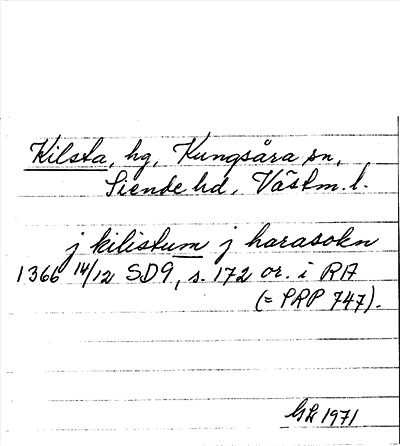 Kilsta, hg, Kungsåra sn,
Siende hd, Västm. l.
j kilistum j harasokn
1366 14/12 SD9, s. 172 or. i RA
(= PRP 747).
GL 1971